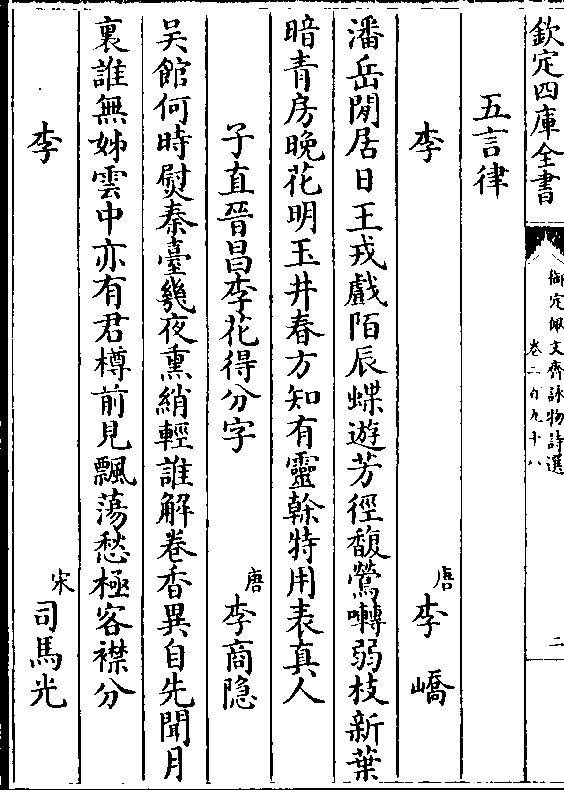 欽定四庫全書
御定佩文齋詠物詩選
卷二百九十八
二
五言律
李
唐李嶠
潘岳閒居日王戎戲陌辰蝶遊芳徑馥鶯囀弱枝新葉
暗青房晚花明玉井春方知有靈榦特用表真人
子直晉昌李花得分字
唐李商隐
吴館何時熨秦臺幾夜熏綃輕誰解卷香異自先聞月
裏誰無姊雲中亦有君樽前見飄蕩愁極客襟分
李
宋司馬光